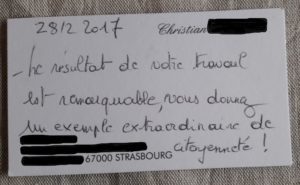 28/2 2017
Christian
- Le résultat de votre travail
est remarquable, vous donnez
un exemple extraordinaire de
citoyenneté !
67000 STRASBOURG